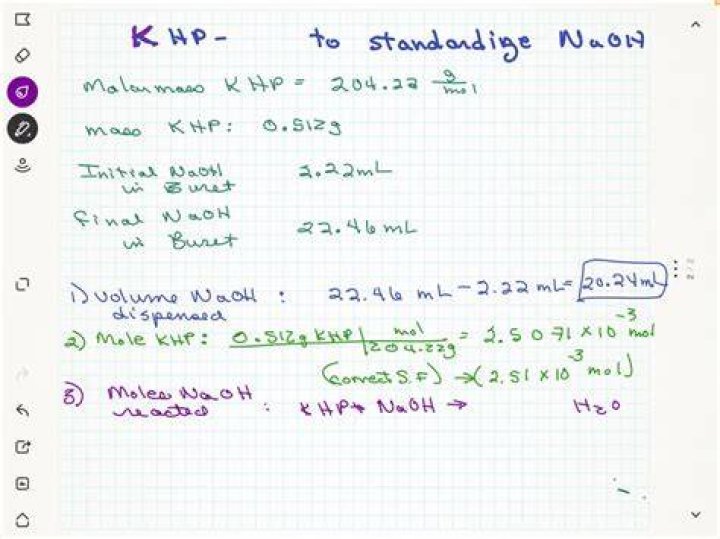 KHP - to standardize NaOH
Molar mass KHP = 204.22 g/mol
mass KHP: 0.512g
Initial NaOH 2.22mL
in Buret
Final NaOH
in Buret 22.46 mL
1) Volume NaOH : 22.46 mL - 2.22 mL = 20.24 mL
dispensed
2) Mole KHP: 0.512g KHP | mol / 204.22g = 2.5071 × 10⁻³ mol
(correct S.F) → (2.51 × 10⁻³ mol)
3) Moles NaOH
reacted : KHP + NaOH → H₂O